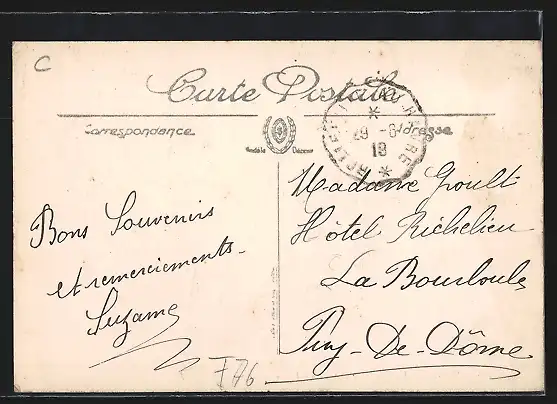 C
Carte Postale
Correspondance
Adresse
29 -6
19
Modèle Déposé
Madame Groult
Hôtel Richelieu
La Bourboule
Puy-De-Dôme
Bons Souvenirs
et remerciements.
Suzanne